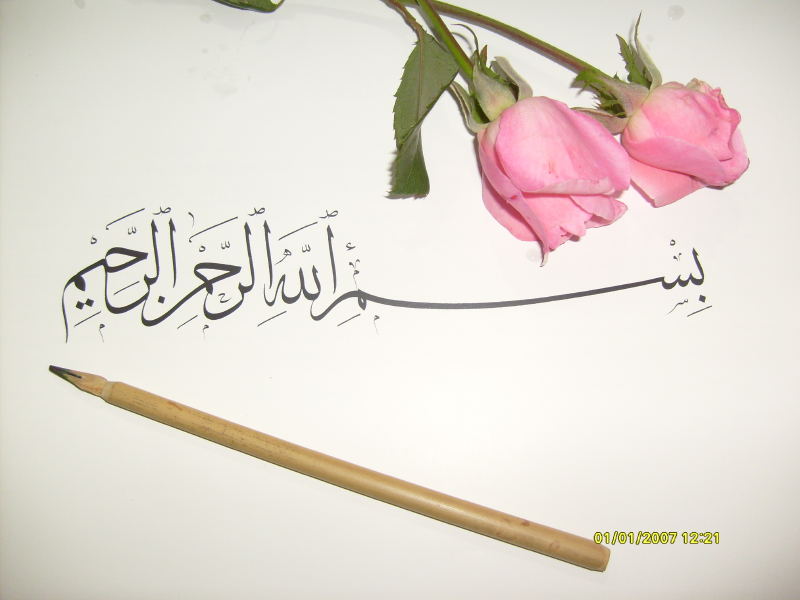 بِسْمِ اللهِ الرَّحْمٰنِ الرَّحِيمِ
01/01/2007 12:21